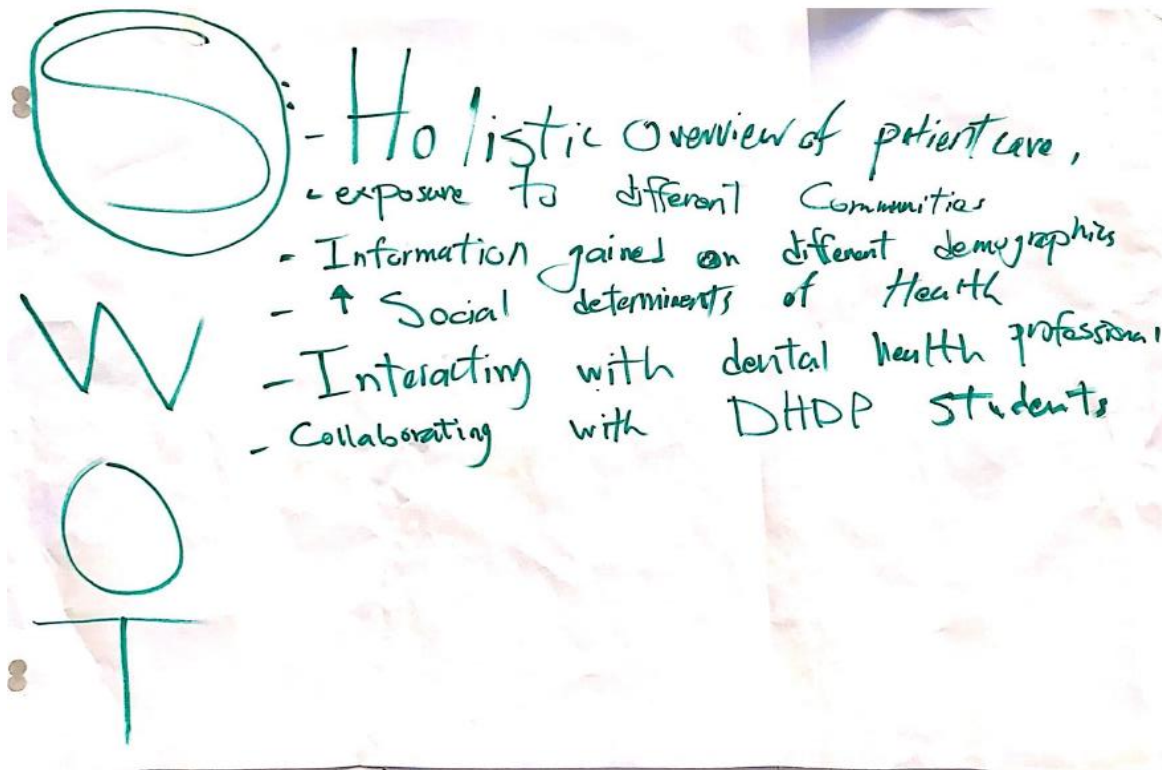 S:
- Holistic Overview of patient care,
- exposure to different Communities
- Information gained on different demographics
- ↑ Social determinents of Health
- Interacting with dental health professional
- Collaborating with DHDP Students
W
O
T